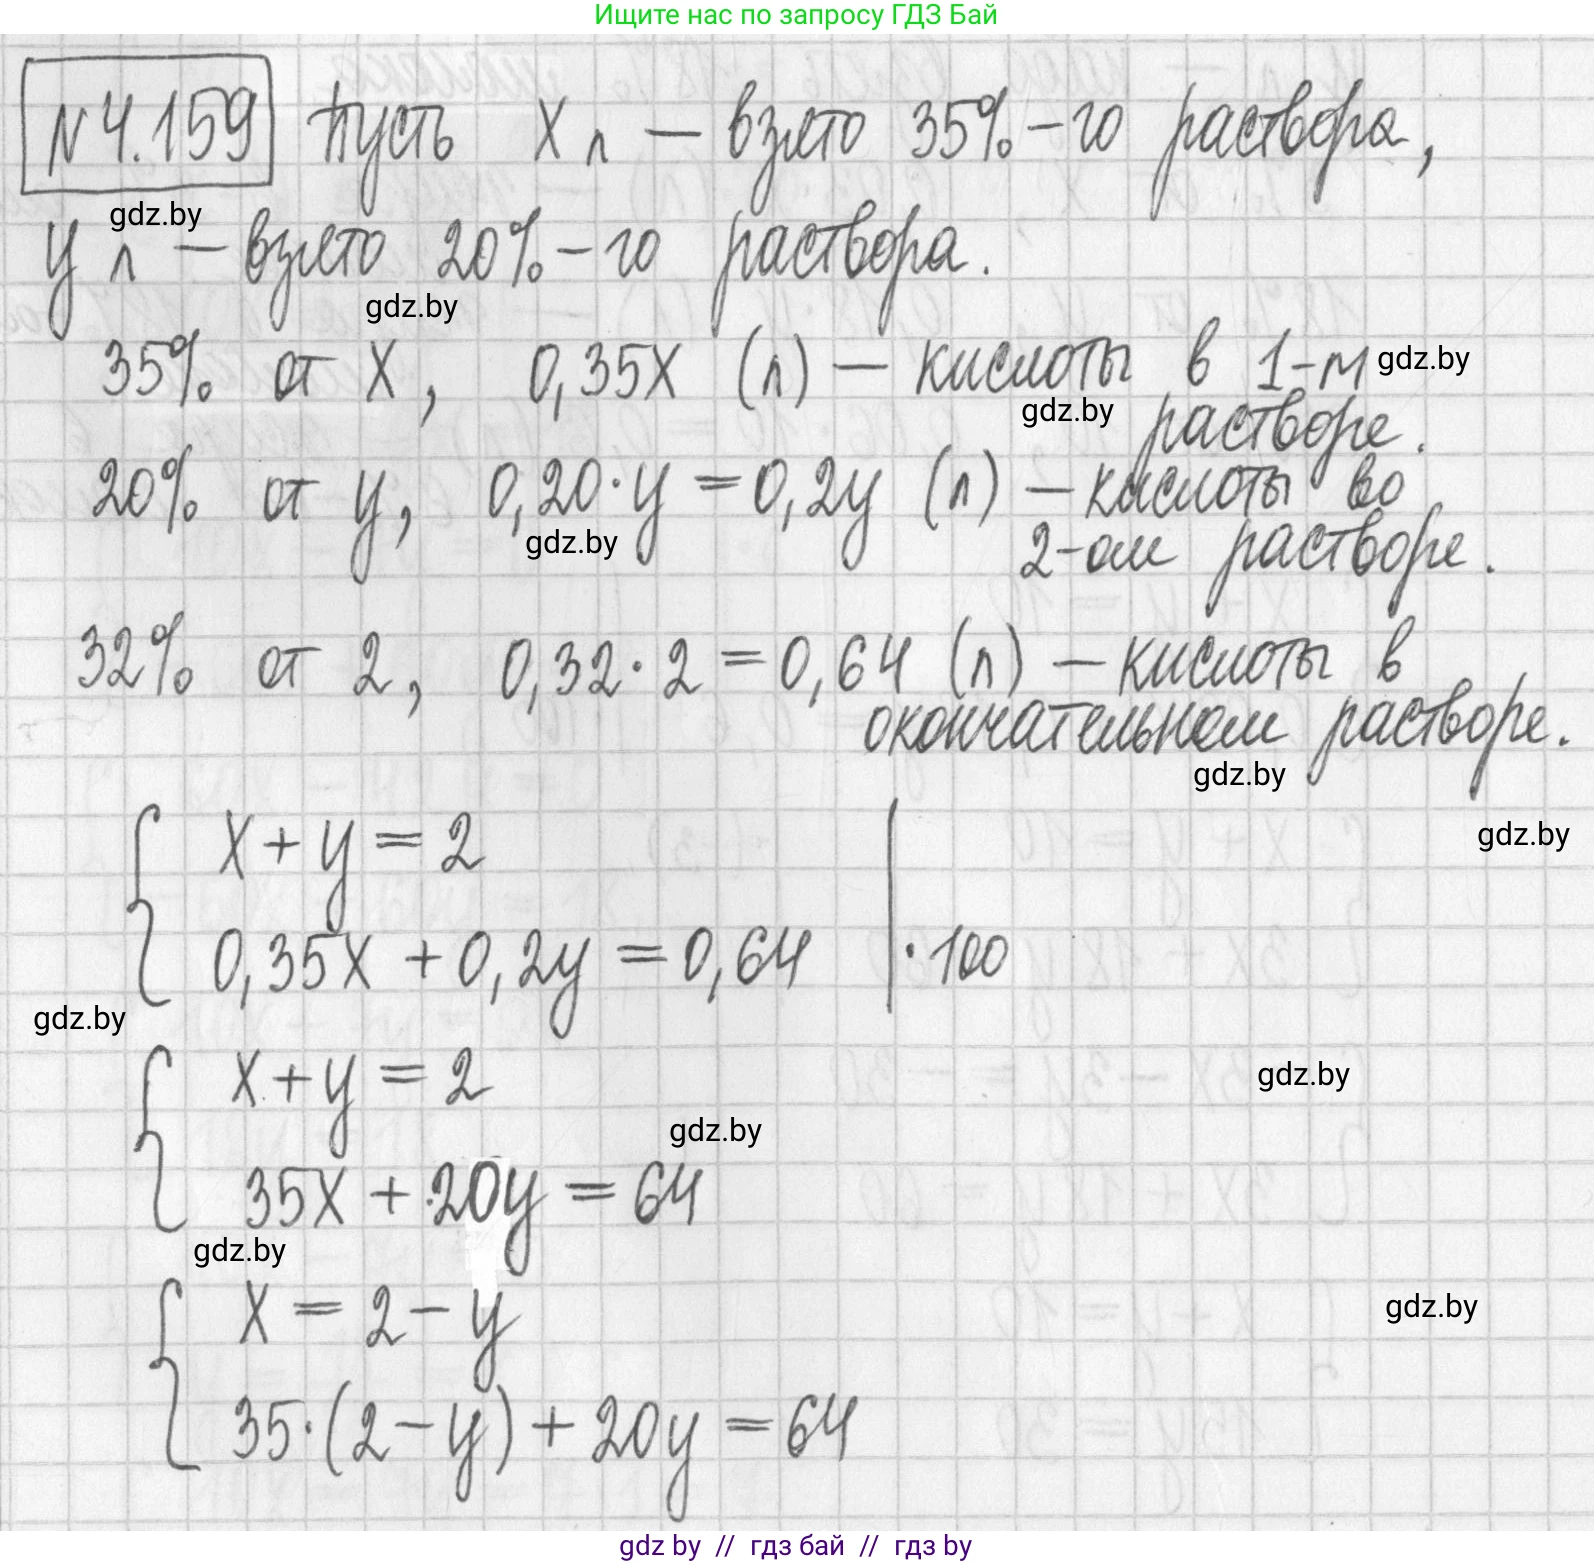 Ищите нас по запросу ГДЗ Бай
N4.159 Пусть x л — взято 35%-го раствора,
gdz.by
y л — взято 20%-го раствора.
gdz.by
35% от x, 0,35x (л) — кислоты в 1-м
gdz.by
gdz.by
растворе.
20% от y, 0,20·y = 0,2y (л) — кислоты во
gdz.by
2-ом растворе.
32% от 2, 0,32·2 = 0,64 (л) — кислоты в
окончательном растворе.
gdz.by
gdz.by
x + y = 2
0,35x + 0,2y = 0,64 | ·100
gdz.by
x + y = 2
gdz.by
gdz.by
35x + 20y = 64
gdz.by
x = 2 - y
gdz.by
35·(2 - y) + 20y = 64
gdz by // гдз бай // гдз by